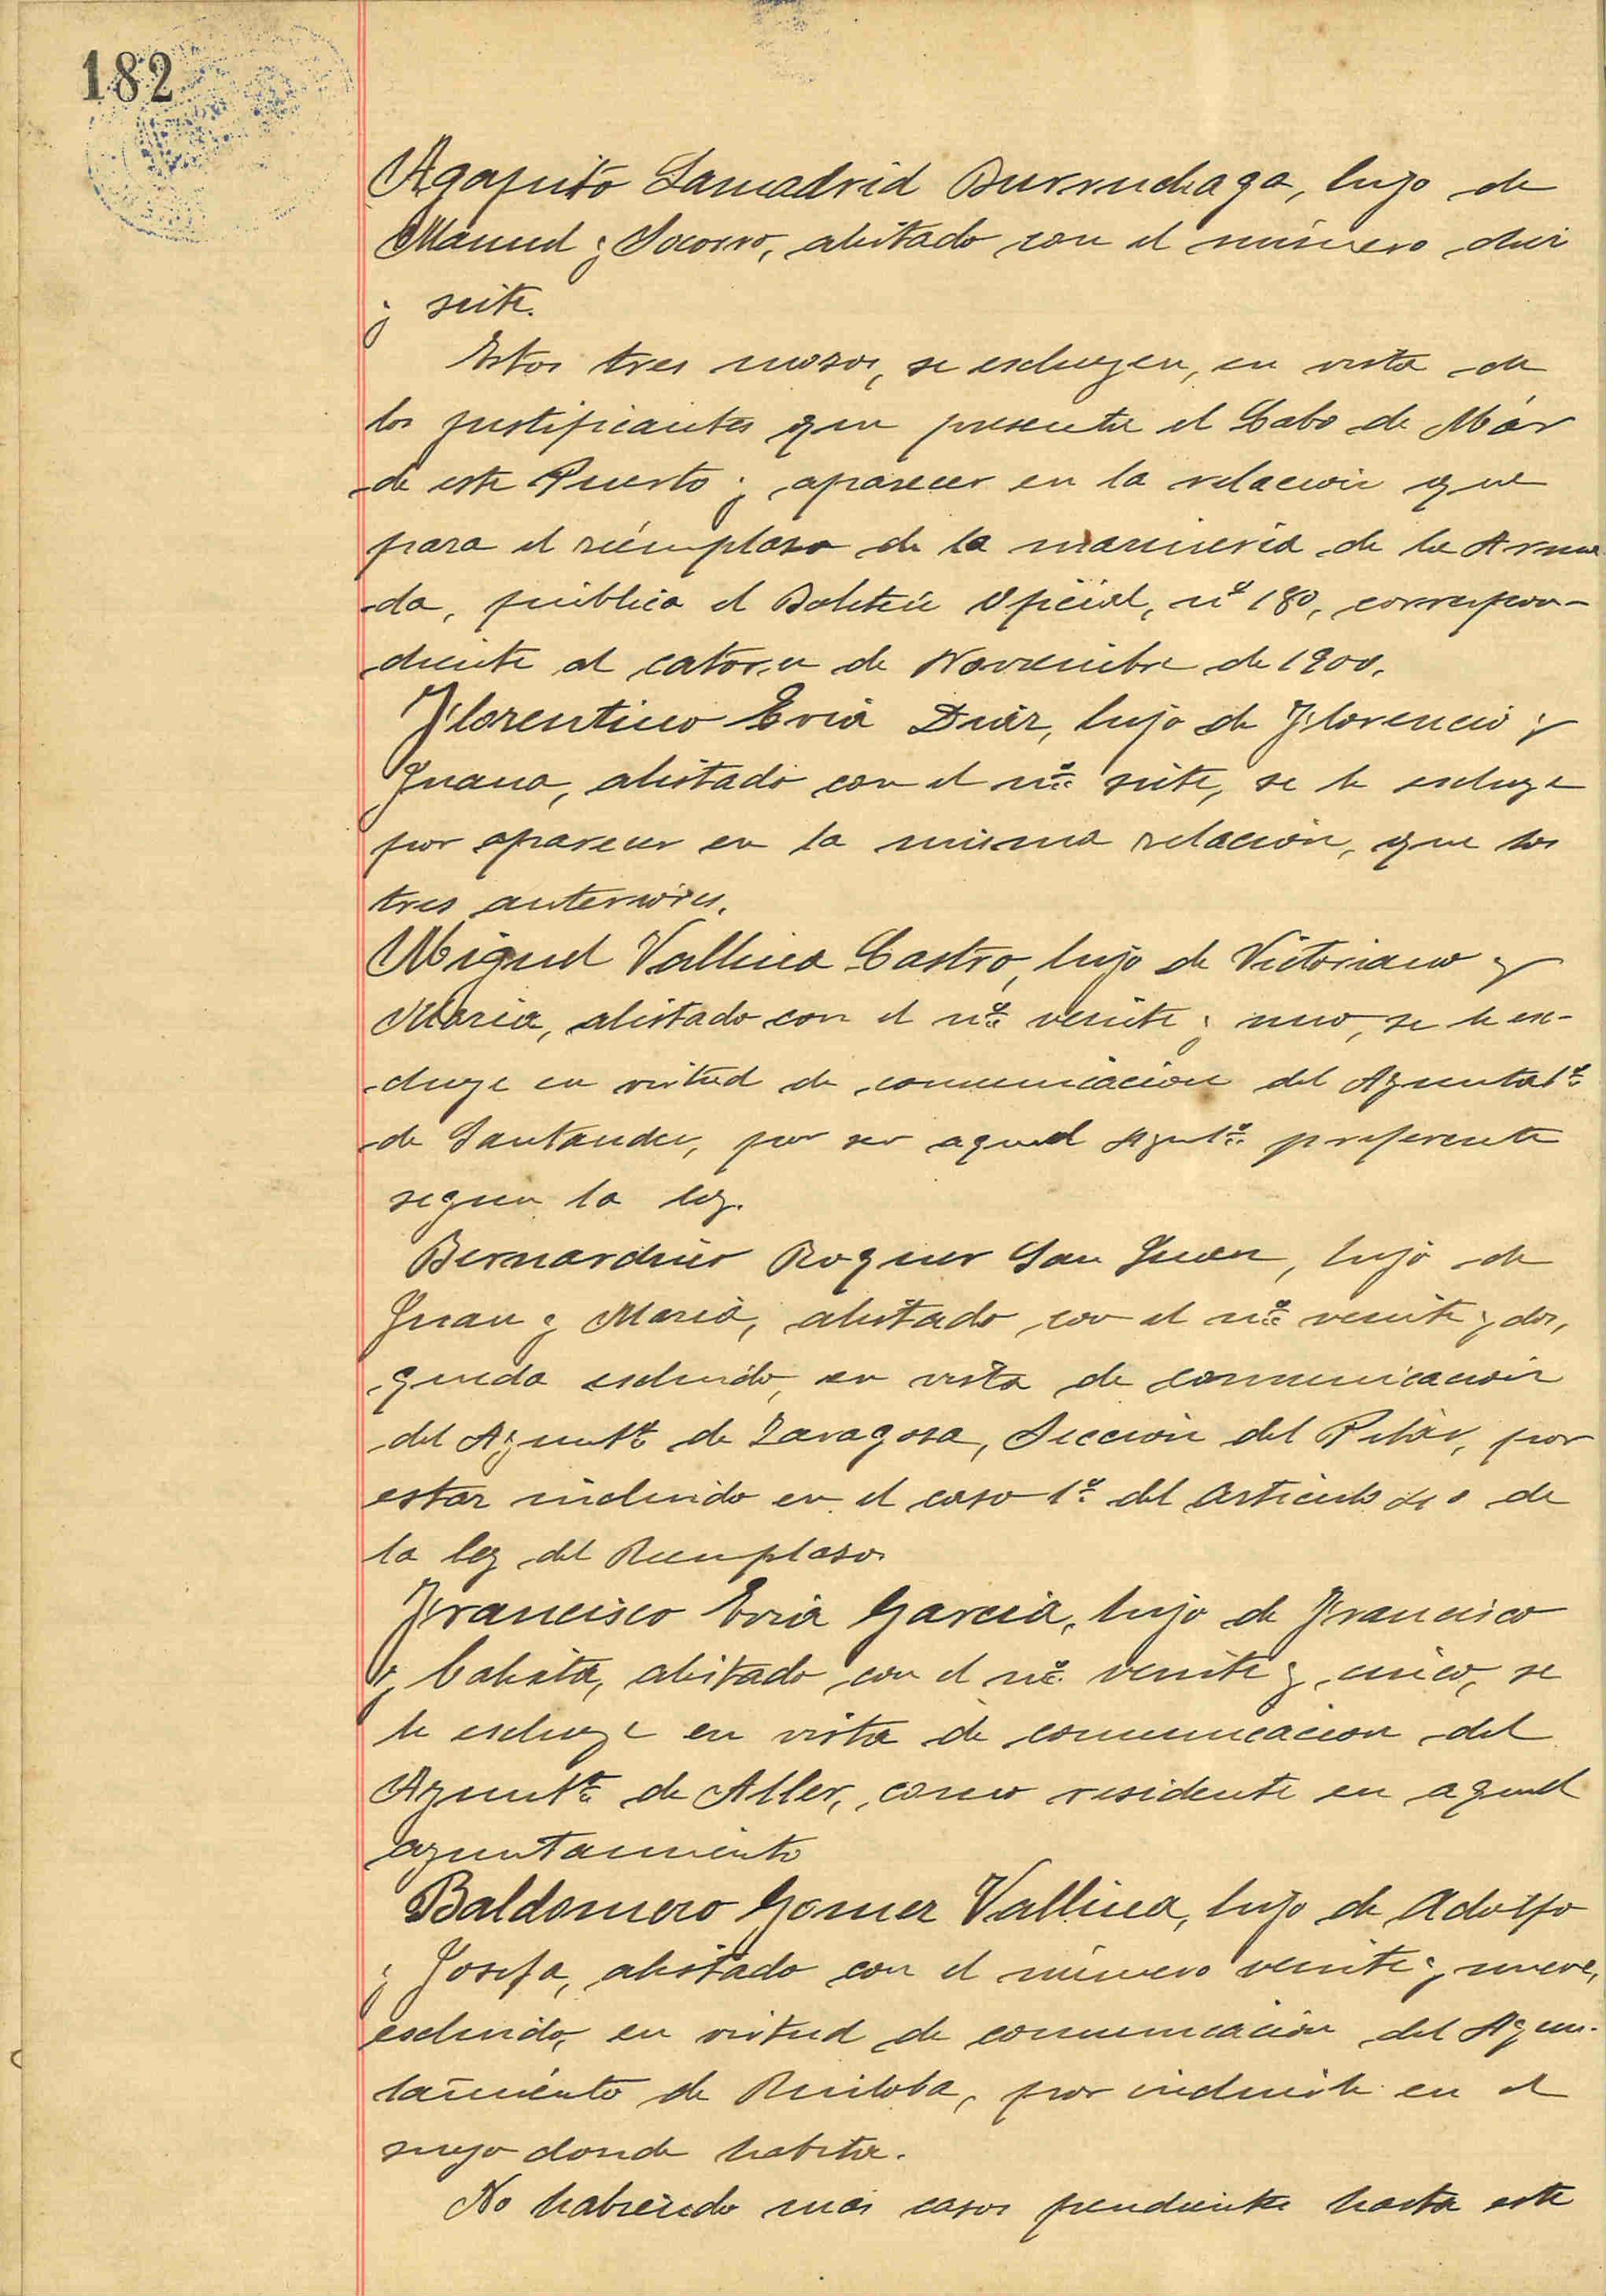 182
Agapito Lamadrid Burruchaga, hijo de
Manuel y Socorro, alistado con el número diez
y siete.
Estos tres mozos, se escluyen, en vista de
los justificantes que presenta el Cabo de Mar
de este Puerto y aparecer en la relación que
para el réemplazo de la marinería de la Arma
da, publica el Boletín Oficial, nº 180, correspon-
diente al catorce de Noviembre de 1900.
Florentino Evia Diaz, hijo de Florencio y
Juana, alistado con el nº siete, se le escluye
por aparecer en la misma relación, que los
tres anteriores.
Miguel Vallina Castro, hijo de Victoriano y
Maria, alistado con el nº veinte y uno, se le es-
cluye en virtud de comunicación del Ayuntatº
de Santander, por ser aquel Ayutº preferente
segun la ley.
Bernardino San Juan, hijo de
Juan y Maria, alistado con el nº veinte y dos,
queda escluido, en vista de comunicación
del Ayuntº de Zaragoza, Sección del Pilar, por
estar incluido en el caso 1º del Articulo de
la ley del Reemplazo.
Francisco Evia Garcia, hijo de Francisco
y Calista, alistado con el nº veinte y cinco, se
le escluye en vista de comunicación del
Ayuntº de Aller, como residente en aquel
ayuntamiento
Baldomero Gomez Vallina, hijo de Adolfo
y Josefa, alistado con el número veinte y nueve,
escluido, en virtud de comunicación del Ayun-
tamiento de Ruiloba, por incluirle en el
suyo donde habita.
No habiendo más casos pendientes hasta este